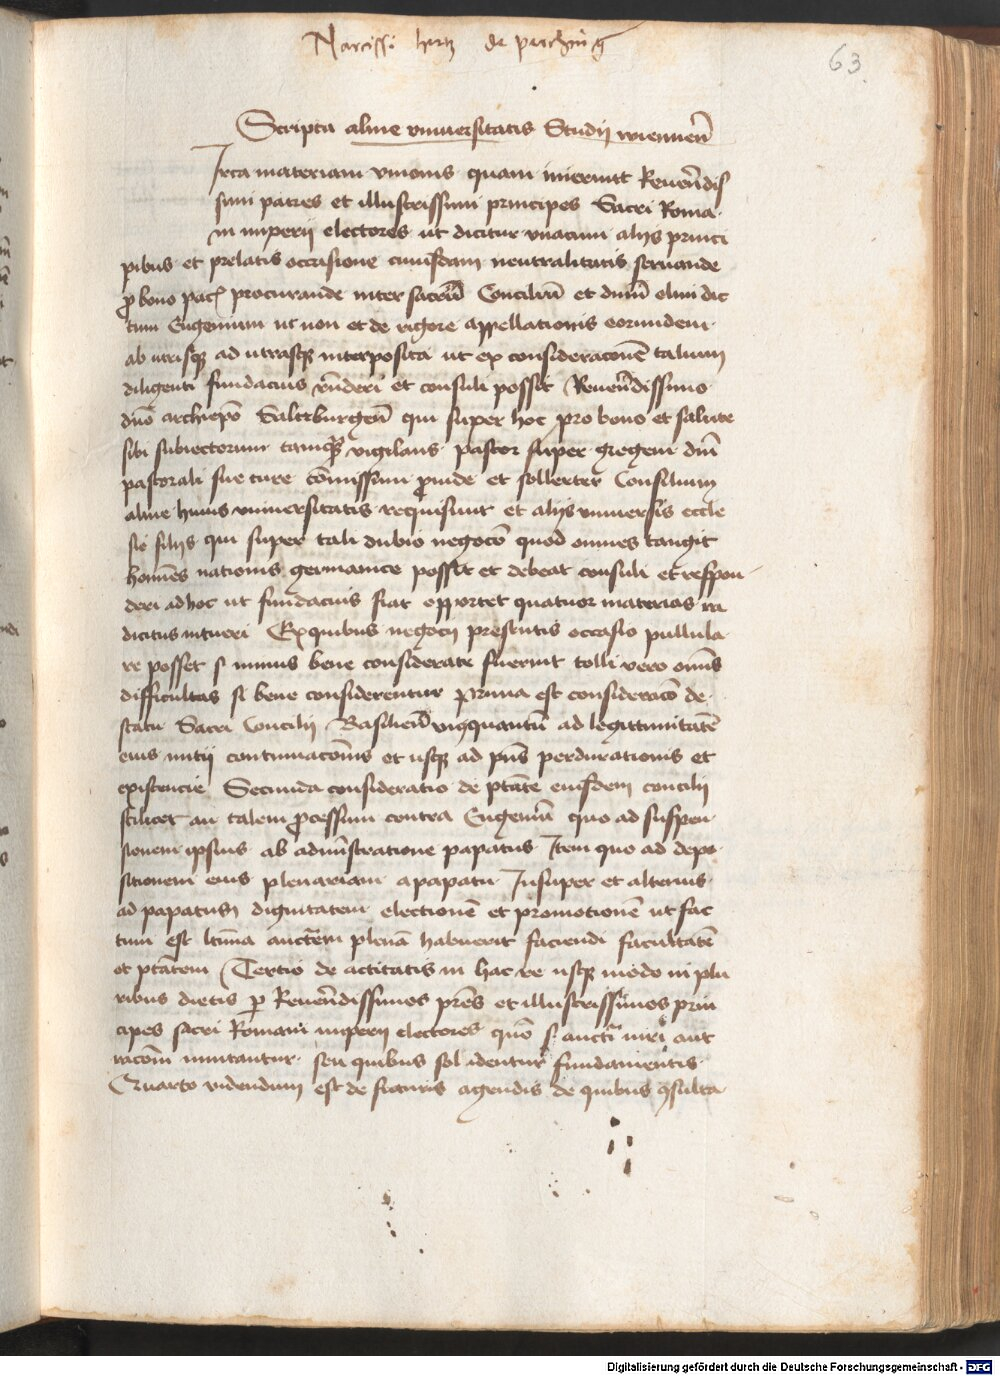 Narcissi hertz de perching
63
Scripta alme vniuersitatis Studij wiennen̄
Irca materiam vnionis quam inierunt Reuerēdis
simi patres et illustrissimi principes Sacri Roma
ni imperij electores ut dicitur vnacum alijs princi
pibus et prelatis occasione cuiusdam neutralitatis seruande
ꝓ bono pacꝭ procurande inter sacrū Conciliū et dnm̄ olim dic
tum Eugenium ut non et de vigore appellationis eorundem
ab utrisqꝫ ad utrasqꝫ interposita ut ex consideracōne talium
diligenti fundacius rn̄deri et consuli possit Reuerēdissimo
dn̄o archiepō Saltzburgen̄ qui super hoc pro bono et salute
sibi subiectorum tamqꝫ vigilans pastor super gregem dn̄i
pastorali sue cure cōmissum ꝓuide et sollerter Consilium
alme huius vniuersitatis requisiuit et alijs vniuersis eccle
sie filijs qui super tali dubio negocō quod omnes tangit
homēs nationis germanice possit et debeat consuli et respon
deri ad hoc ut fundacius fiat opportet quatuor materias ra
dicitus intueri Ex quibus negocij presentis occasio pullula
re posset si minus bene considerate fuerint tolli vero om̄is
difficultas si bene considerentur Prima est consideracō de
statu Sacri Concilij Basilien̄ vicꝫ quantū ad legittimitatē
eius initij continuacōnis et usqꝫ ad pn̄s perdurationis et
existencie Secunda consideratio de ptāte eiusdem concilij
scilicet an talem ꝓcessum contra Eugeniū quo ad suspen
sionem ipsius ab admīstratione papatus Item quo ad depo
sitionem eius plenariam a papatu Insuper et alterius
ad papatus dignitatem electionē et promotionē ut fac
tum est ltīma auctēm plenā habuerit faciendi facultatē
et ptātem Tertio de actitatis in hac re usqꝫ modo in plu
ribus dietis ꝑ Reuerēdissimos prēs et illustrissimos prin
cipes sacri Romani imperij electores quō si aucti iuri aut
racōni innitantur seu quibus solidentur fundamentis
Quarto videndum est de futuris agendis de quibus ꝯsulta
Digitalisierung gefördert durch die Deutsche Forschungsgemeinschaft - DFG